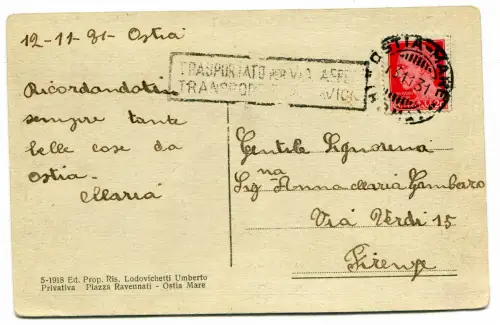 12-11-31- Ostia
Ricordandoti
sempre tante
belle cose da
Ostia-
Maria
TRASPORTATO PER VIA AEREA
OSTIA-MARE
Gentile Signorina
Sig na Anna Maria Gambaro
Via Verdi 15
Firenze
5-1918 Ed. Prop. Ris. Lodovichetti Umberto
Privativa Piazza Ravennati - Ostia Mare